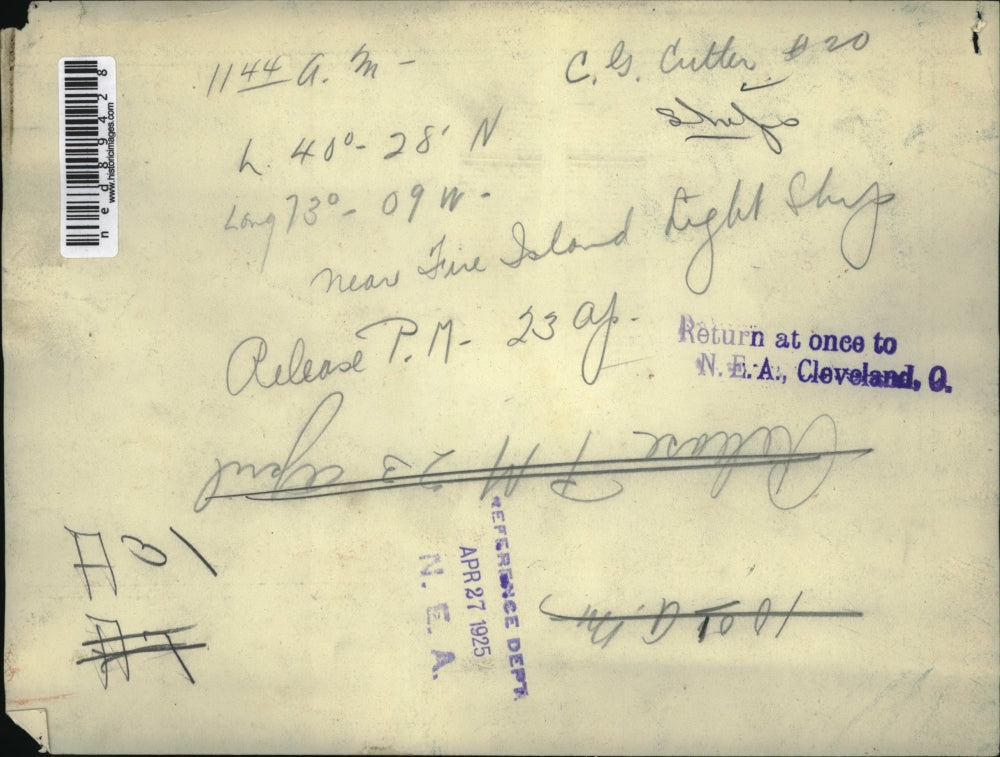 1144 A. M -
C. G. Cutter #20
Ships
L. 40° - 28' N
Long 73° - 09 W -
near Fire Island Light Ship
Release P.M - 23 Ap.
Return at once to
N. E. A., Cleveland, O.
Release P M 23 April
REFERENCE DEPT.
APR 27 1925
N. E. A.
A. M
ned89428
www.historicimages.com